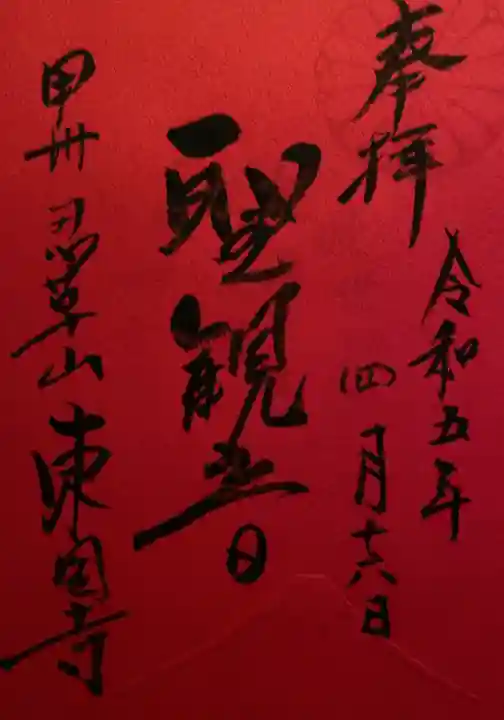 奉拝
令和五年
四月十六日
聖観音
甲州 忍草山 東圓寺